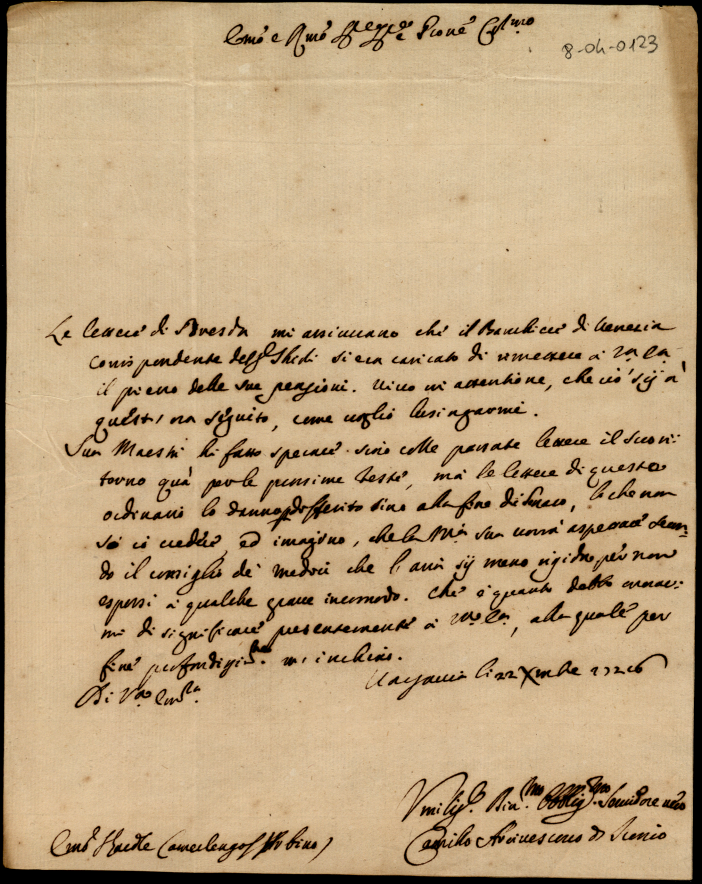 Em̃o e Rm̃o Sig.re Sig.re e Prone Col.mo
8-04-0123
Le lettere di Dresda mi assicurano che il Banchiere di Venezia
corrispondente delli si era caricato di rimettere à V.ra Em.a
il pieno delle sue pensioni. Vivo in attentione, che ciò sij à
quest'ora seguito, come voglio lusingarmi.
Sua Maestà hà fatto sperare sino colle passate lettere il suo ri-
torno quà per le prossime feste, mà le lettere di questo
ordinario lo danno differito sino alla fine di, lo che non
sò io credere, ed imagino, che la M.tà sua vorrà aspettare secon-
do il consiglio de' medici che l'aria sij meno rigida per non
esporsi à qualche grave incomodo. Che è quanto debbo
di significare presentemente à V.ra Em.a, alla quale per
fine profondissim.te m'inchino.
Di V.ra Em.za
Varsavia li 22 Xmbre 1726
Umiliss.o Div.mo Obblig.mo Servidore vero
Camillo Arcivescovo di Iconio
Em.o Sig.r Cardle Camerlengo (Urbino)